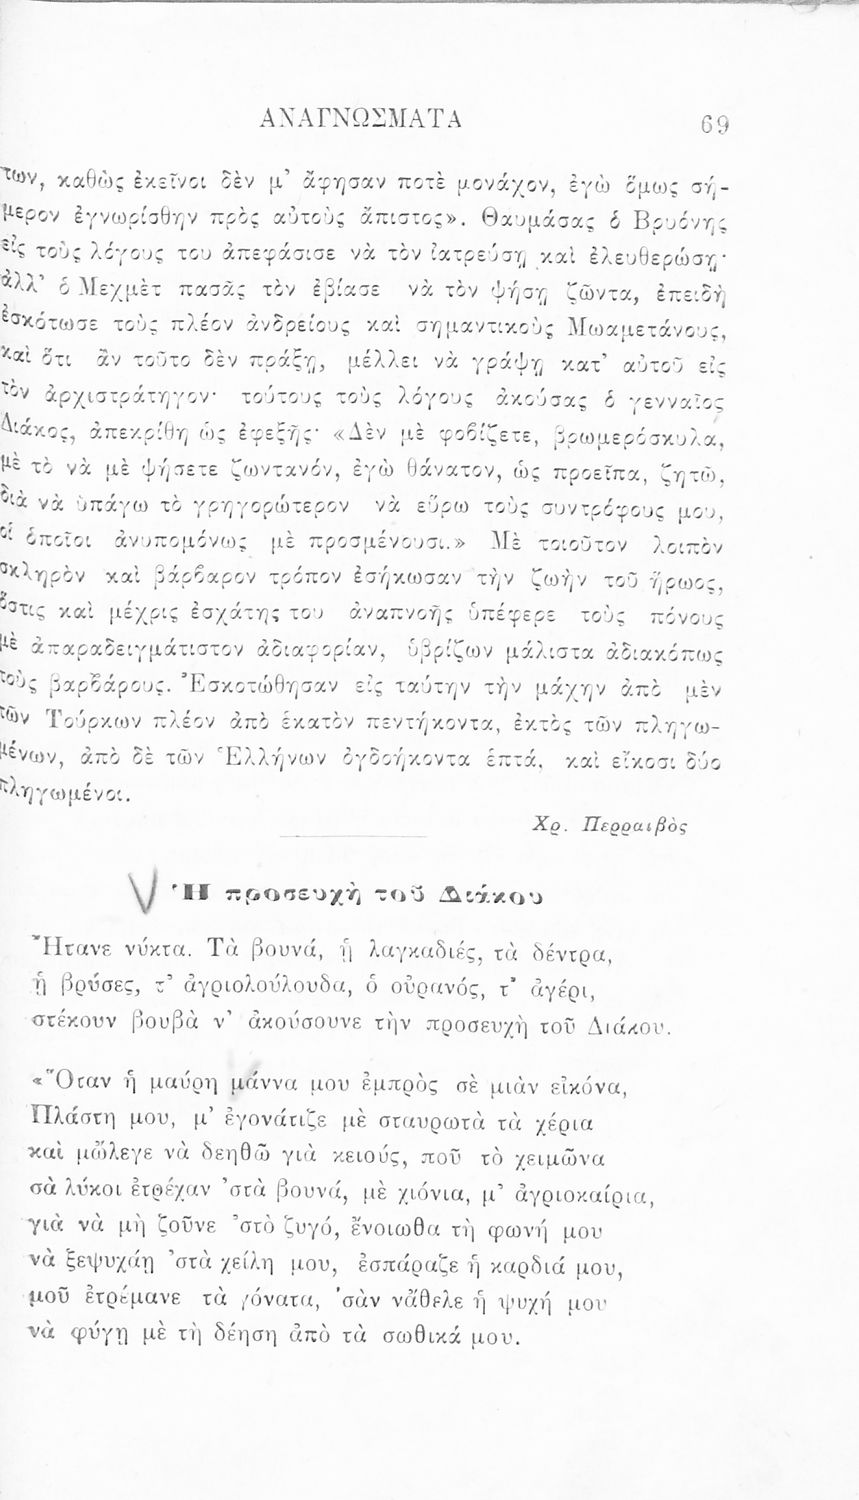 ΑΝΑΓΝΩΣΜΑΤΑ 69
των, καθὼς ἐκεῖνοι δὲν μ’ ἄφησαν ποτὲ μονάχον, ἐγὼ ὅμως σή-
μερον ἐγνωρίσθην πρὸς αὐτοὺς ἄπιστος». Θαυμάσας ὁ Βρυόνης
εἰς τοὺς λόγους του ἀπεφάσισε νὰ τὸν ἰατρεύσῃ καὶ ἐλευθερώσῃ·
ἀλλ’ ὁ Μεχμὲτ πασᾶς τὸν ἐβίασε νὰ τὸν ψήσῃ ζῶντα, ἐπειδὴ
ἐσκότωσε τοὺς πλέον ἀνδρείους καὶ σημαντικοὺς Μωαμετάνους,
καὶ ὅτι ἂν τοῦτο δὲν πράξῃ, μέλλει νὰ γράψῃ κατ’ αὐτοῦ εἰς
τὸν ἀρχιστράτηγον· τούτους τοὺς λόγους ἀκούσας ὁ γενναῖος
Διάκος, ἀπεκρίθη ὡς ἐφεξῆς· «Δὲν μὲ φοβίζετε, βρωμερόσκυλα,
μὲ τὸ νὰ μὲ ψήσετε ζωντανόν, ἐγὼ θάνατον, ὡς προεῖπα, ζητῶ,
διὰ νὰ ὑπάγω τὸ γρηγορώτερον νὰ εὕρω τοὺς συντρόφους μου,
οἱ ὁποῖοι ἀνυπομόνως μὲ προσμένουσι.» Μὲ τοιοῦτον λοιπὸν
σκληρὸν καὶ βάρβαρον τρόπον ἐσήκωσαν τὴν ζωὴν τοῦ ἥρωος,
ὅστις καὶ μέχρις ἐσχάτης του ἀναπνοῆς ὑπέφερε τοὺς πόνους
μὲ ἀπαραδειγμάτιστον ἀδιαφορίαν, ὑβρίζων μάλιστα ἀδιακόπως
τοὺς βαρβάρους. Ἐσκοτώθησαν εἰς ταύτην τὴν μάχην ἀπὸ μὲν
τῶν Τούρκων πλέον ἀπὸ ἑκατὸν πεντήκοντα, ἐκτὸς τῶν πληγω-
μένων, ἀπὸ δὲ τῶν Ἑλλήνων ὀγδοήκοντα ἑπτά, καὶ εἴκοσι δύο
πληγωμένοι.
Χρ. Περραιβὸς
Ἡ προσευχὴ τοῦ Διάκου
Ἤτανε νύκτα. Τὰ βουνά, ἡ λαγκαδιές, τὰ δέντρα,
ἡ βρύσες, τ’ ἀγριολούλουδα, ὁ οὐρανός, τ’ ἀγέρι,
στέκουν βουβὰ ν’ ἀκούσουνε τὴν προσευχὴ τοῦ Διάκου.
«Ὅταν ἡ μαύρη μάννα μου ἐμπρὸς σὲ μιὰν εἰκόνα,
Πλάστη μου, μ’ ἐγονάτιζε μὲ σταυρωτὰ τὰ χέρια
καὶ μὤλεγε νὰ δεηθῶ γιὰ κειούς, ποῦ τὸ χειμῶνα
σὰ λύκοι ἐτρέχαν ’στὰ βουνά, μὲ χιόνια, μ’ ἀγριοκαίρια,
γιὰ νὰ μὴ ζοῦνε ’στὸ ζυγό, ἔνοιωθα τὴ φωνή μου
νὰ ξεψυχάῃ ’στὰ χείλη μου, ἐσπάραζε ἡ καρδιά μου,
μοῦ ἐτρέμανε τὰ γόνατα, ’σὰν νἄθελε ἡ ψυχή μου
νὰ φύγῃ μὲ τὴ δέηση ἀπὸ τὰ σωθικά μου.